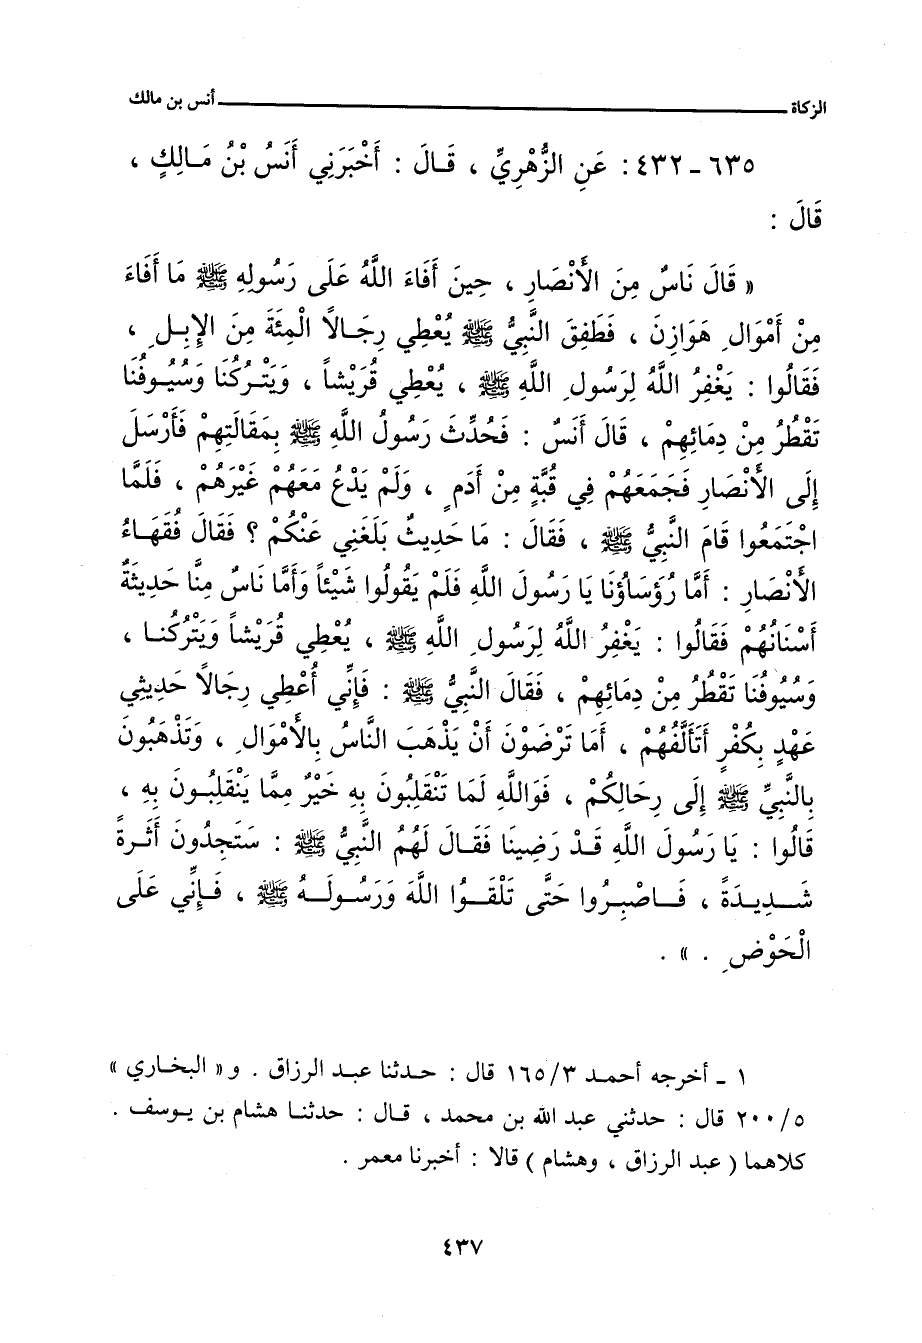 الزكاة أنس بن مالك
٦٣٥ - ٤٣٢ : عَنِ الزُّهْرِيِّ ، قَالَ : أَخْبَرَنِي أَنَسُ بْنُ مَالِكٍ ،
قَالَ :
« قَالَ نَاسٌ مِنَ الأَنْصَارِ ، حِينَ أَفَاءَ اللَّهُ عَلَى رَسُولِهِ ﷺ مَا أَفَاءَ
مِنْ أَمْوَالِ هَوَازِنَ ، فَطَفِقَ النَّبِيُّ ﷺ يُعْطِي رِجَالاً الْمِئَةَ مِنَ الإِبِلِ ،
فَقَالُوا : يَغْفِرُ اللَّهُ لِرَسُولِ اللَّهِ ﷺ ، يُعْطِي قُرَيْشاً ، وَيَتْرُكُنَا وَسُيُوفُنَا
تَقْطُرُ مِنْ دِمَائِهِمْ ، قَالَ أَنَسٌ : فَحُدِّثَ رَسُولُ اللَّهِ ﷺ بِمَقَالَتِهِمْ فَأَرْسَلَ
إِلَى الأَنْصَارِ فَجَمَعَهُمْ فِي قُبَّةٍ مِنْ أَدَمٍ ، وَلَمْ يَدْعُ مَعَهُمْ غَيْرَهُمْ ، فَلَمَّا
اجْتَمَعُوا قَامَ النَّبِيُّ ﷺ ، فَقَالَ : مَا حَدِيثٌ بَلَغَنِي عَنْكُمْ ؟ فَقَالَ فُقَهَاءُ
الأَنْصَارِ : أَمَّا رُؤَسَاؤُنَا يَا رَسُولَ اللَّهِ فَلَمْ يَقُولُوا شَيْئاً وَأَمَّا نَاسٌ مِنَّا حَدِيثَةٌ
أَسْنَانُهُمْ فَقَالُوا : يَغْفِرُ اللَّهُ لِرَسُولِ اللَّهِ ﷺ ، يُعْطِي قُرَيْشاً وَيَتْرُكُنَا ،
وَسُيُوفُنَا تَقْطُرُ مِنْ دِمَائِهِمْ ، فَقَالَ النَّبِيُّ ﷺ : فَإِنِّي أُعْطِي رِجَالاً حَدِيثِي
عَهْدٍ بِكُفْرٍ أَتَأَلَّفُهُمْ ، أَمَا تَرْضَوْنَ أَنْ يَذْهَبَ النَّاسُ بِالأَمْوَالِ ، وَتَذْهَبُونَ
بِالنَّبِيِّ ﷺ إِلَى رِحَالِكُمْ ، فَوَاللَّهِ لَمَا تَنْقَلِبُونَ بِهِ خَيْرٌ مِمَّا يَنْقَلِبُونَ بِهِ ،
قَالُوا : يَا رَسُولَ اللَّهِ قَدْ رَضِينَا فَقَالَ لَهُمُ النَّبِيُّ ﷺ : سَتَجِدُونَ أَثَرَةً
شَدِيدَةً ، فَاصْبِرُوا حَتَّى تَلْقَوُا اللَّهَ وَرَسُولَهُ ﷺ ، فَإِنِّي عَلَى
الْحَوْضِ . » .
١ - أخرجه أحمد ١٦٥/٣ قال : حدثنا عبد الرزاق . و« البخاري »
٢٠٠/٥ قال : حدثني عبد الله بن محمد ، قال : حدثنا هشام بن يوسف .
كلاهما ( عبد الرزاق ، وهشام ) قالا : أخبرنا معمر .
٤٣٧